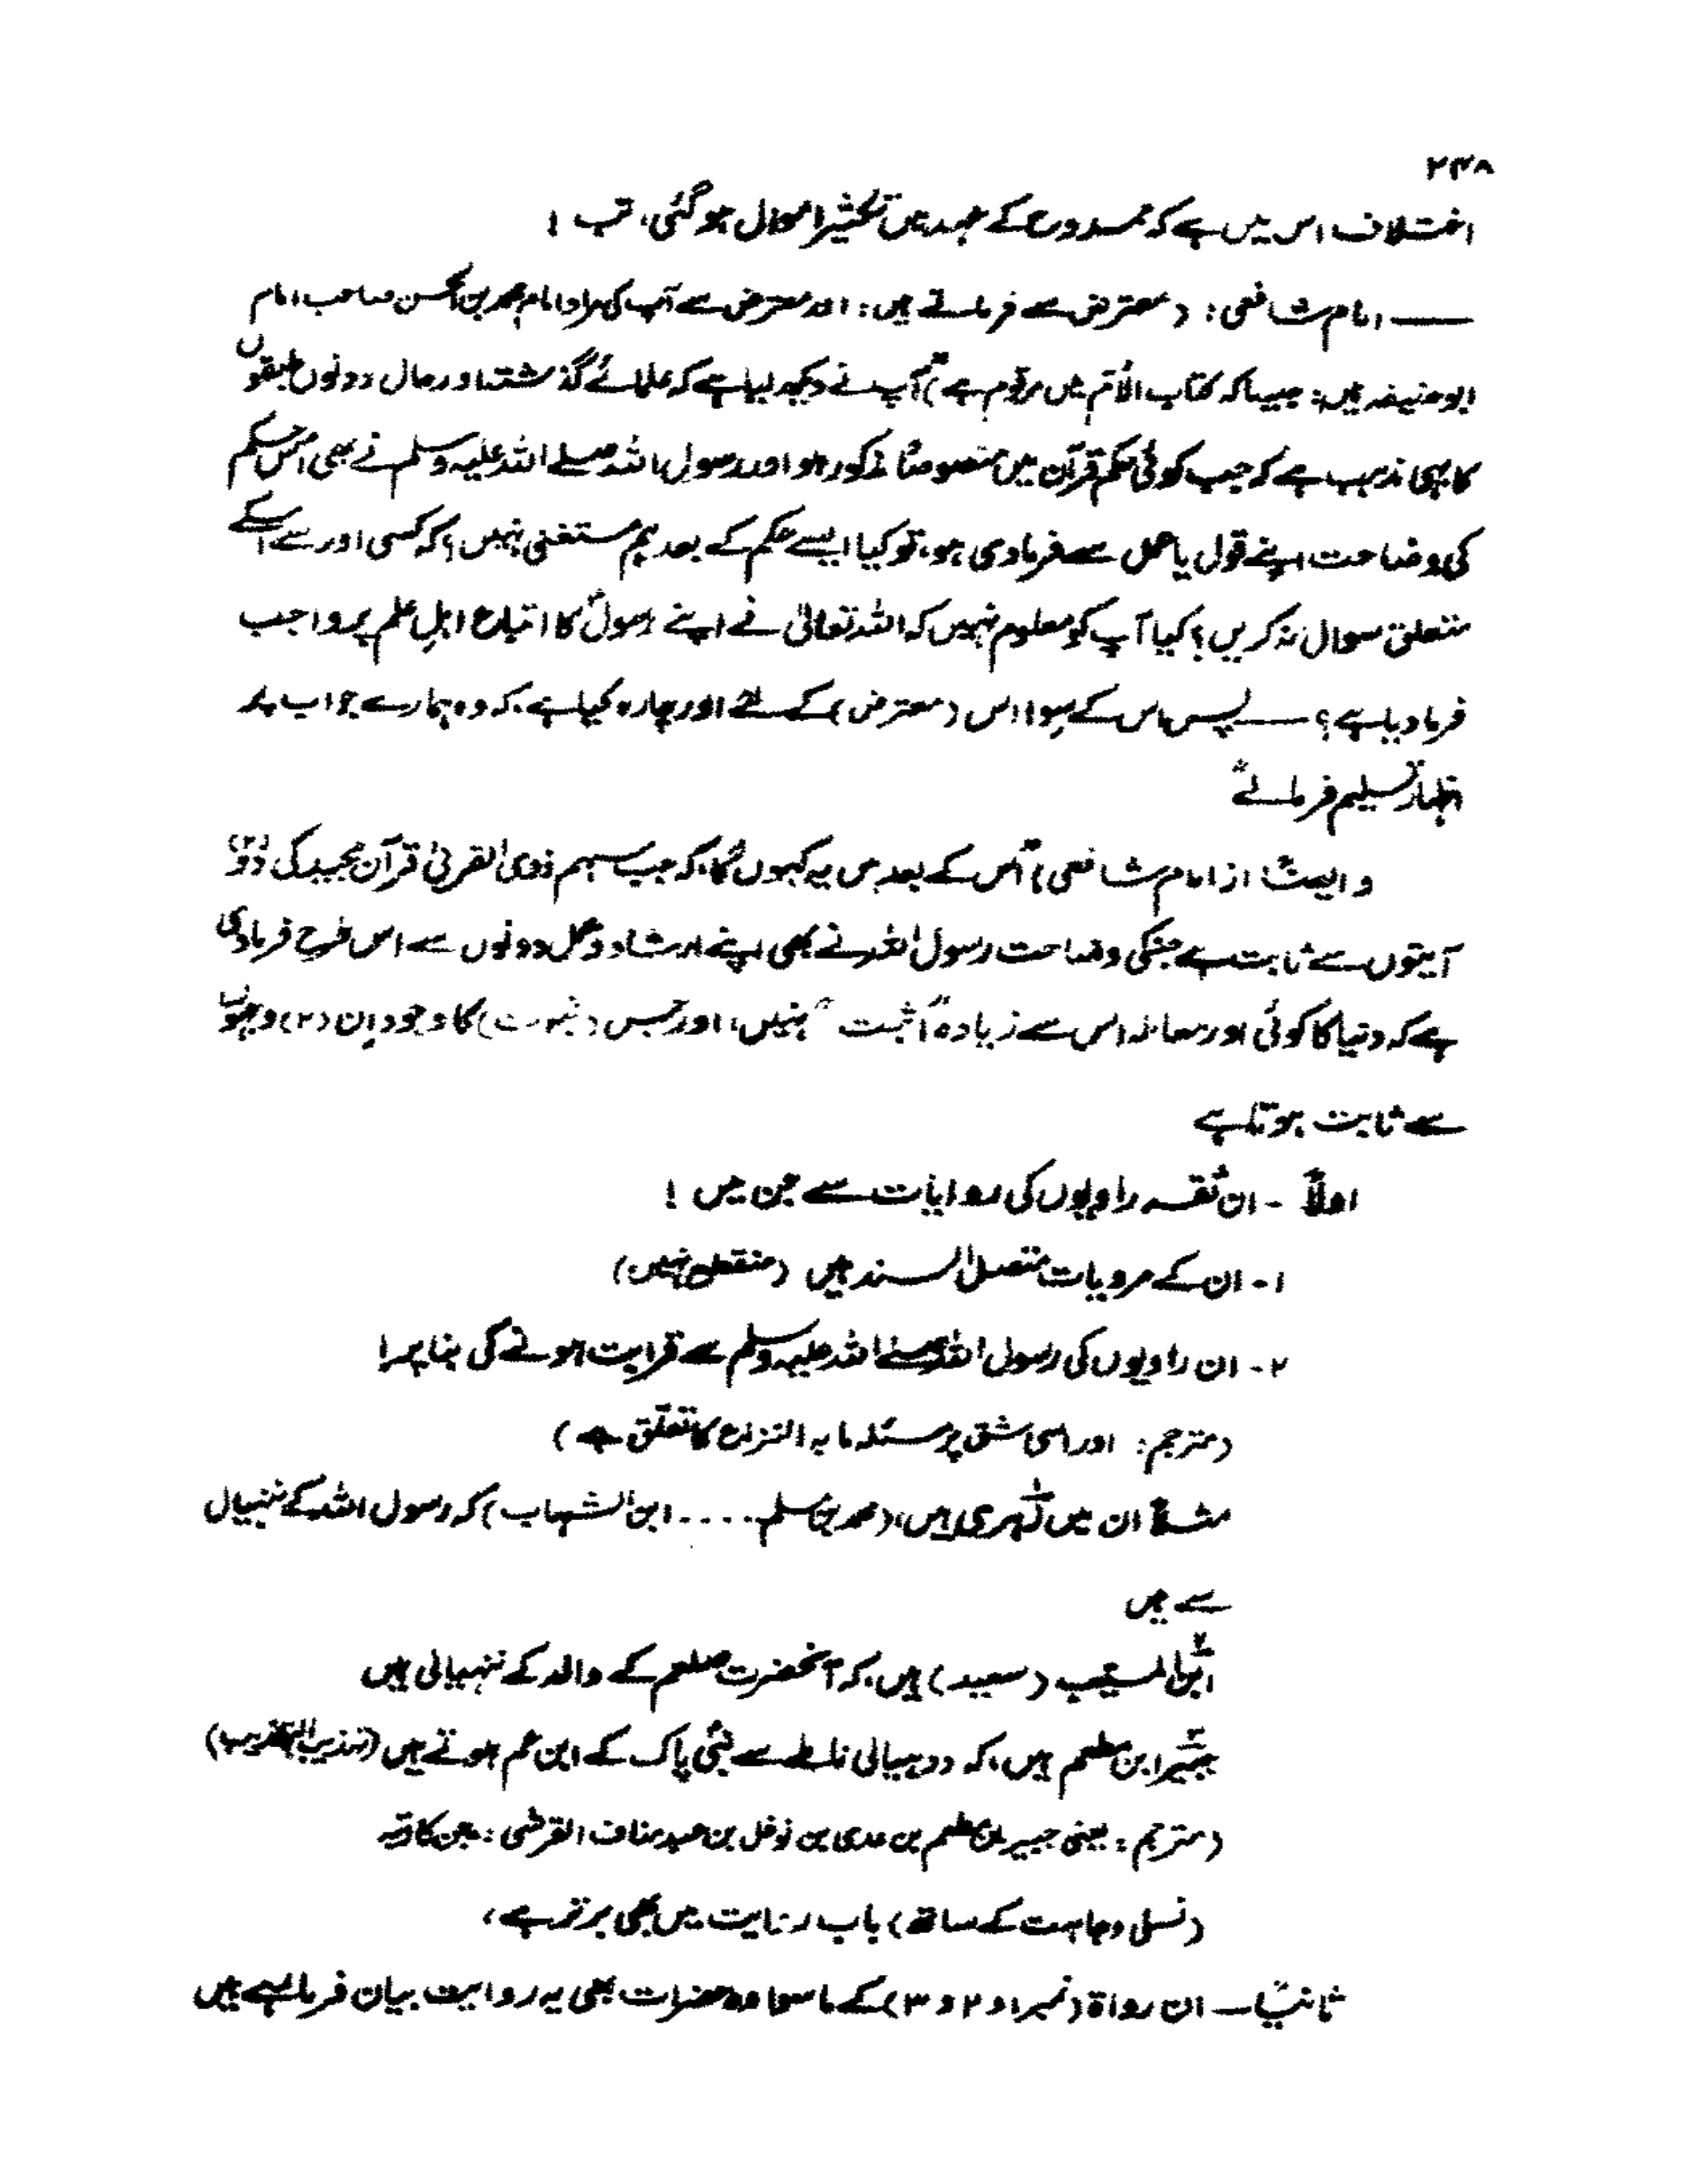 ۲۳۸
اختلاف اس میں ہے کہ ممدوح کے عہد میں تکثیر اموال ہو گئی، تب!
—— امام شافعی: (معترض سے فرماتے ہیں: اور معترض سے آپ کی مراد امام محمد بن الحسن صاحب امام
ابو حنیفہ ہیں: جیسا کہ کتاب الاُم میں مرقوم ہے) "آپ نے دیکھ لیا ہے کہ علمائے گذشتہ اور حال دونوں طبقوں
کا یہی مذہب ہے کہ جب کوئی حکم قرآن میں منصوصاً مذکور ہو اور رسول اللہ صلے اللہ علیہ وسلم نے بھی اس حکم
کی وضاحت اپنے قول یا عمل سے فرما دی ہو، تو کیا ایسے حکم کے بعد ہم مستغنی نہیں؟ کہ کسی اور سے اسکے
متعلق سوال نہ کریں؟ کیا آپ کو معلوم نہیں کہ اللہ تعالیٰ نے اپنے رسولؐ کا اتباع اہلِ علم پر واجب
فرما دیا ہے؟ —— پس اس کے سِوا اس (معترض) کے لئے اور چارہ کیا ہے، کہ وہ ہمارے جواب پر
اظہار تسلیم فرمائے"
(ایضاً از امام شافعی) "اس کے بعد میں یہ کہوں گا، کہ جب سہم ذوی القربیٰ قرآن مجید کی دو (۲)
آیتوں سے ثابت ہے جنکی وضاحت رسول اللہ نے بھی اپنے ارشاد و عمل دونوں سے اس طرح فرما دی
ہے کہ دنیا کا کوئی اور معاملہ اس سے زیادہ "اثبت" نہیں، اور جس (ثبوت) کا وجود اِن (۲) وجہوں
سے ثابت ہوتا ہے
اولاً - ان ثقہ راویوں کی روایات سے جن میں!
۱- ان کے مرویات متصل السند ہیں (منقطع نہیں)
۲- ان راویوں کی رسول اللہ صلے اللہ علیہ وسلم سے قرابت ہونے کی بنا پر!
(مترجم: اور اسی شق پر مسئلہ ما بہ النزاع کا تعلق ہے)
مثلاً ان میں زہری ہیں، (محمد بن مسلم.... ابن الشہاب) کہ رسول اللہ کے ننہیال
سے ہیں
ابن المسیب (سعید) ہیں، کہ آنحضرت صلعم کے والد کے ننہیالی ہیں
جبیر ابن مطعم ہیں، کہ ددہیالی ناطے سے نبی پاک کے ابن عم ہوتے ہیں (تہذیب التہذیب)
(مترجم: یعنی جبیر بن مطعم بن عدی بن نوفل بن عبد مناف القرشی: جن کا رتبہ
(نسلی وجاہت کے ساتھ) باب روایت میں بھی برتر ہے،
ثانیاً — ان رواۃ (نمبر ۱ و ۲ و ۳) کے ماسوا وہ حضرات بھی یہ روایت بیان فرما رہے ہیں